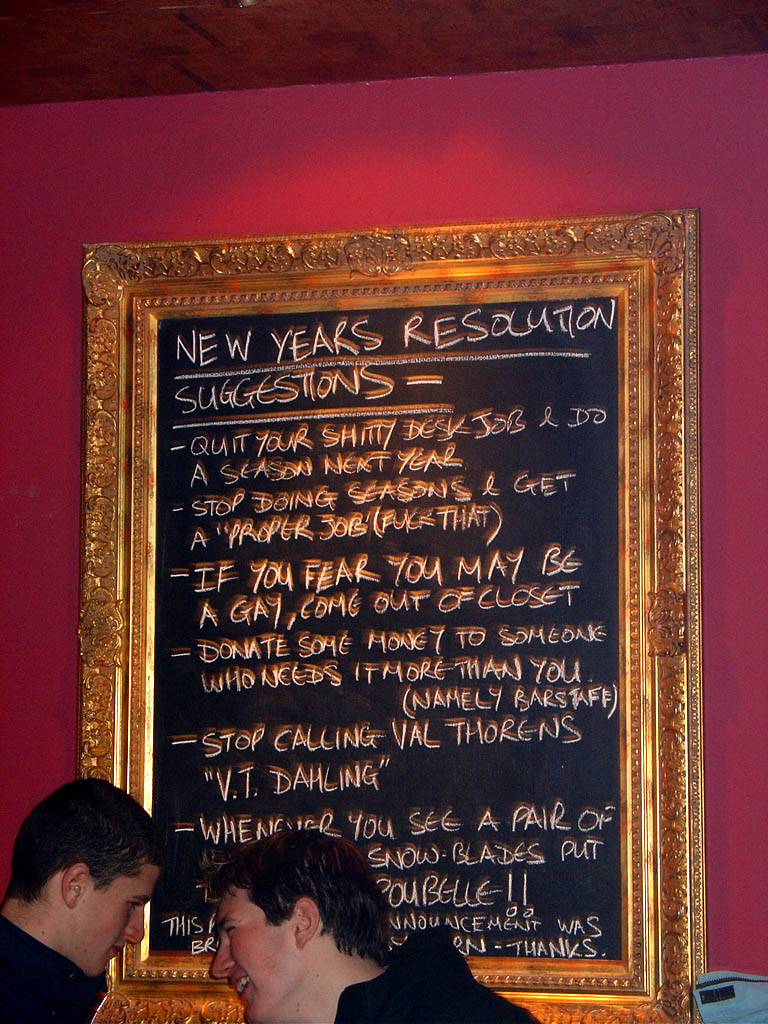 NEW YEARS RESOLUTION
SUGGESTIONS =
- QUIT YOUR SHITTY DESK JOB & DO
A SEASON NEXT YEAR
- STOP DOING SEASONS & GET
A "PROPER JOB" (FUCK THAT)
- IF YOU FEAR YOU MAY BE
A GAY, COME OUT OF CLOSET
- DONATE SOME MONEY TO SOMEONE
WHO NEEDS IT MORE THAN YOU.
(NAMELY BARSTAFF)
- STOP CALLING VAL THORENS
"V.T. DAHLING"
- WHENEVER YOU SEE A PAIR OF
SNOW-BLADES PUT
POUBELLE!!
THIS ANNOUNCEMENT WAS
- THANKS.